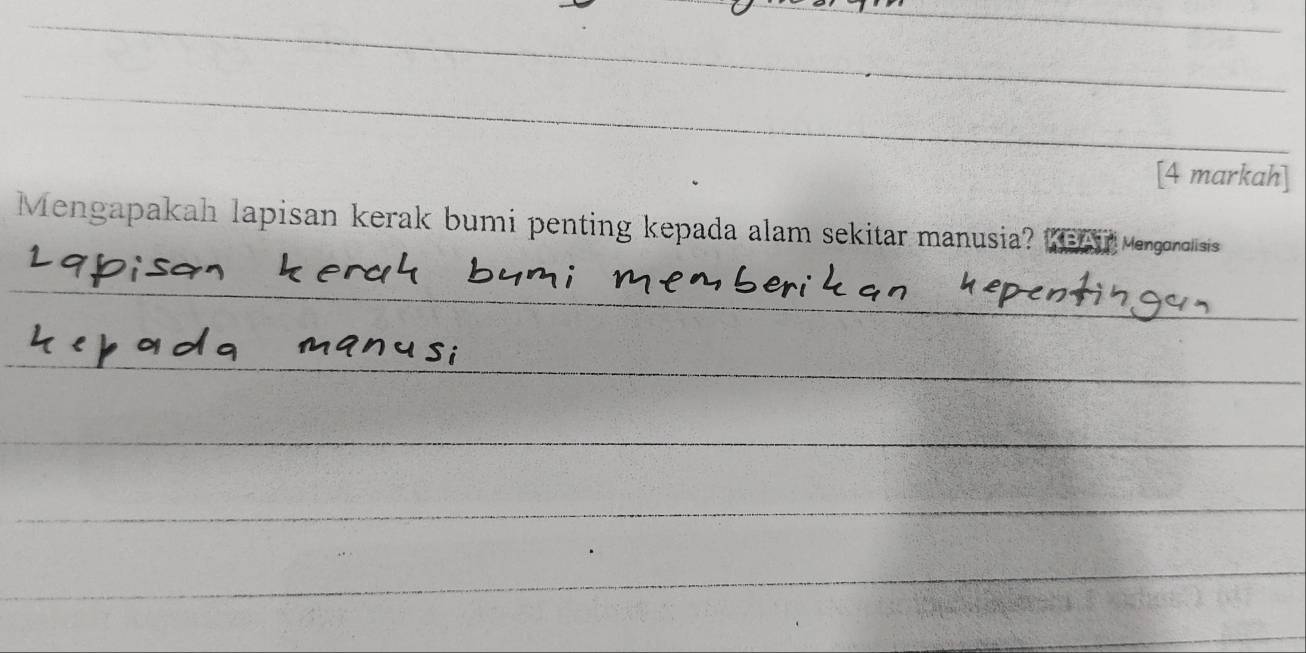 [4 markah]
Mengapakah lapisan kerak bumi penting kepada alam sekitar manusia? KBAT Menganalisis
Lapisan kerak bumi memberikan kepentingan
kepada manusi